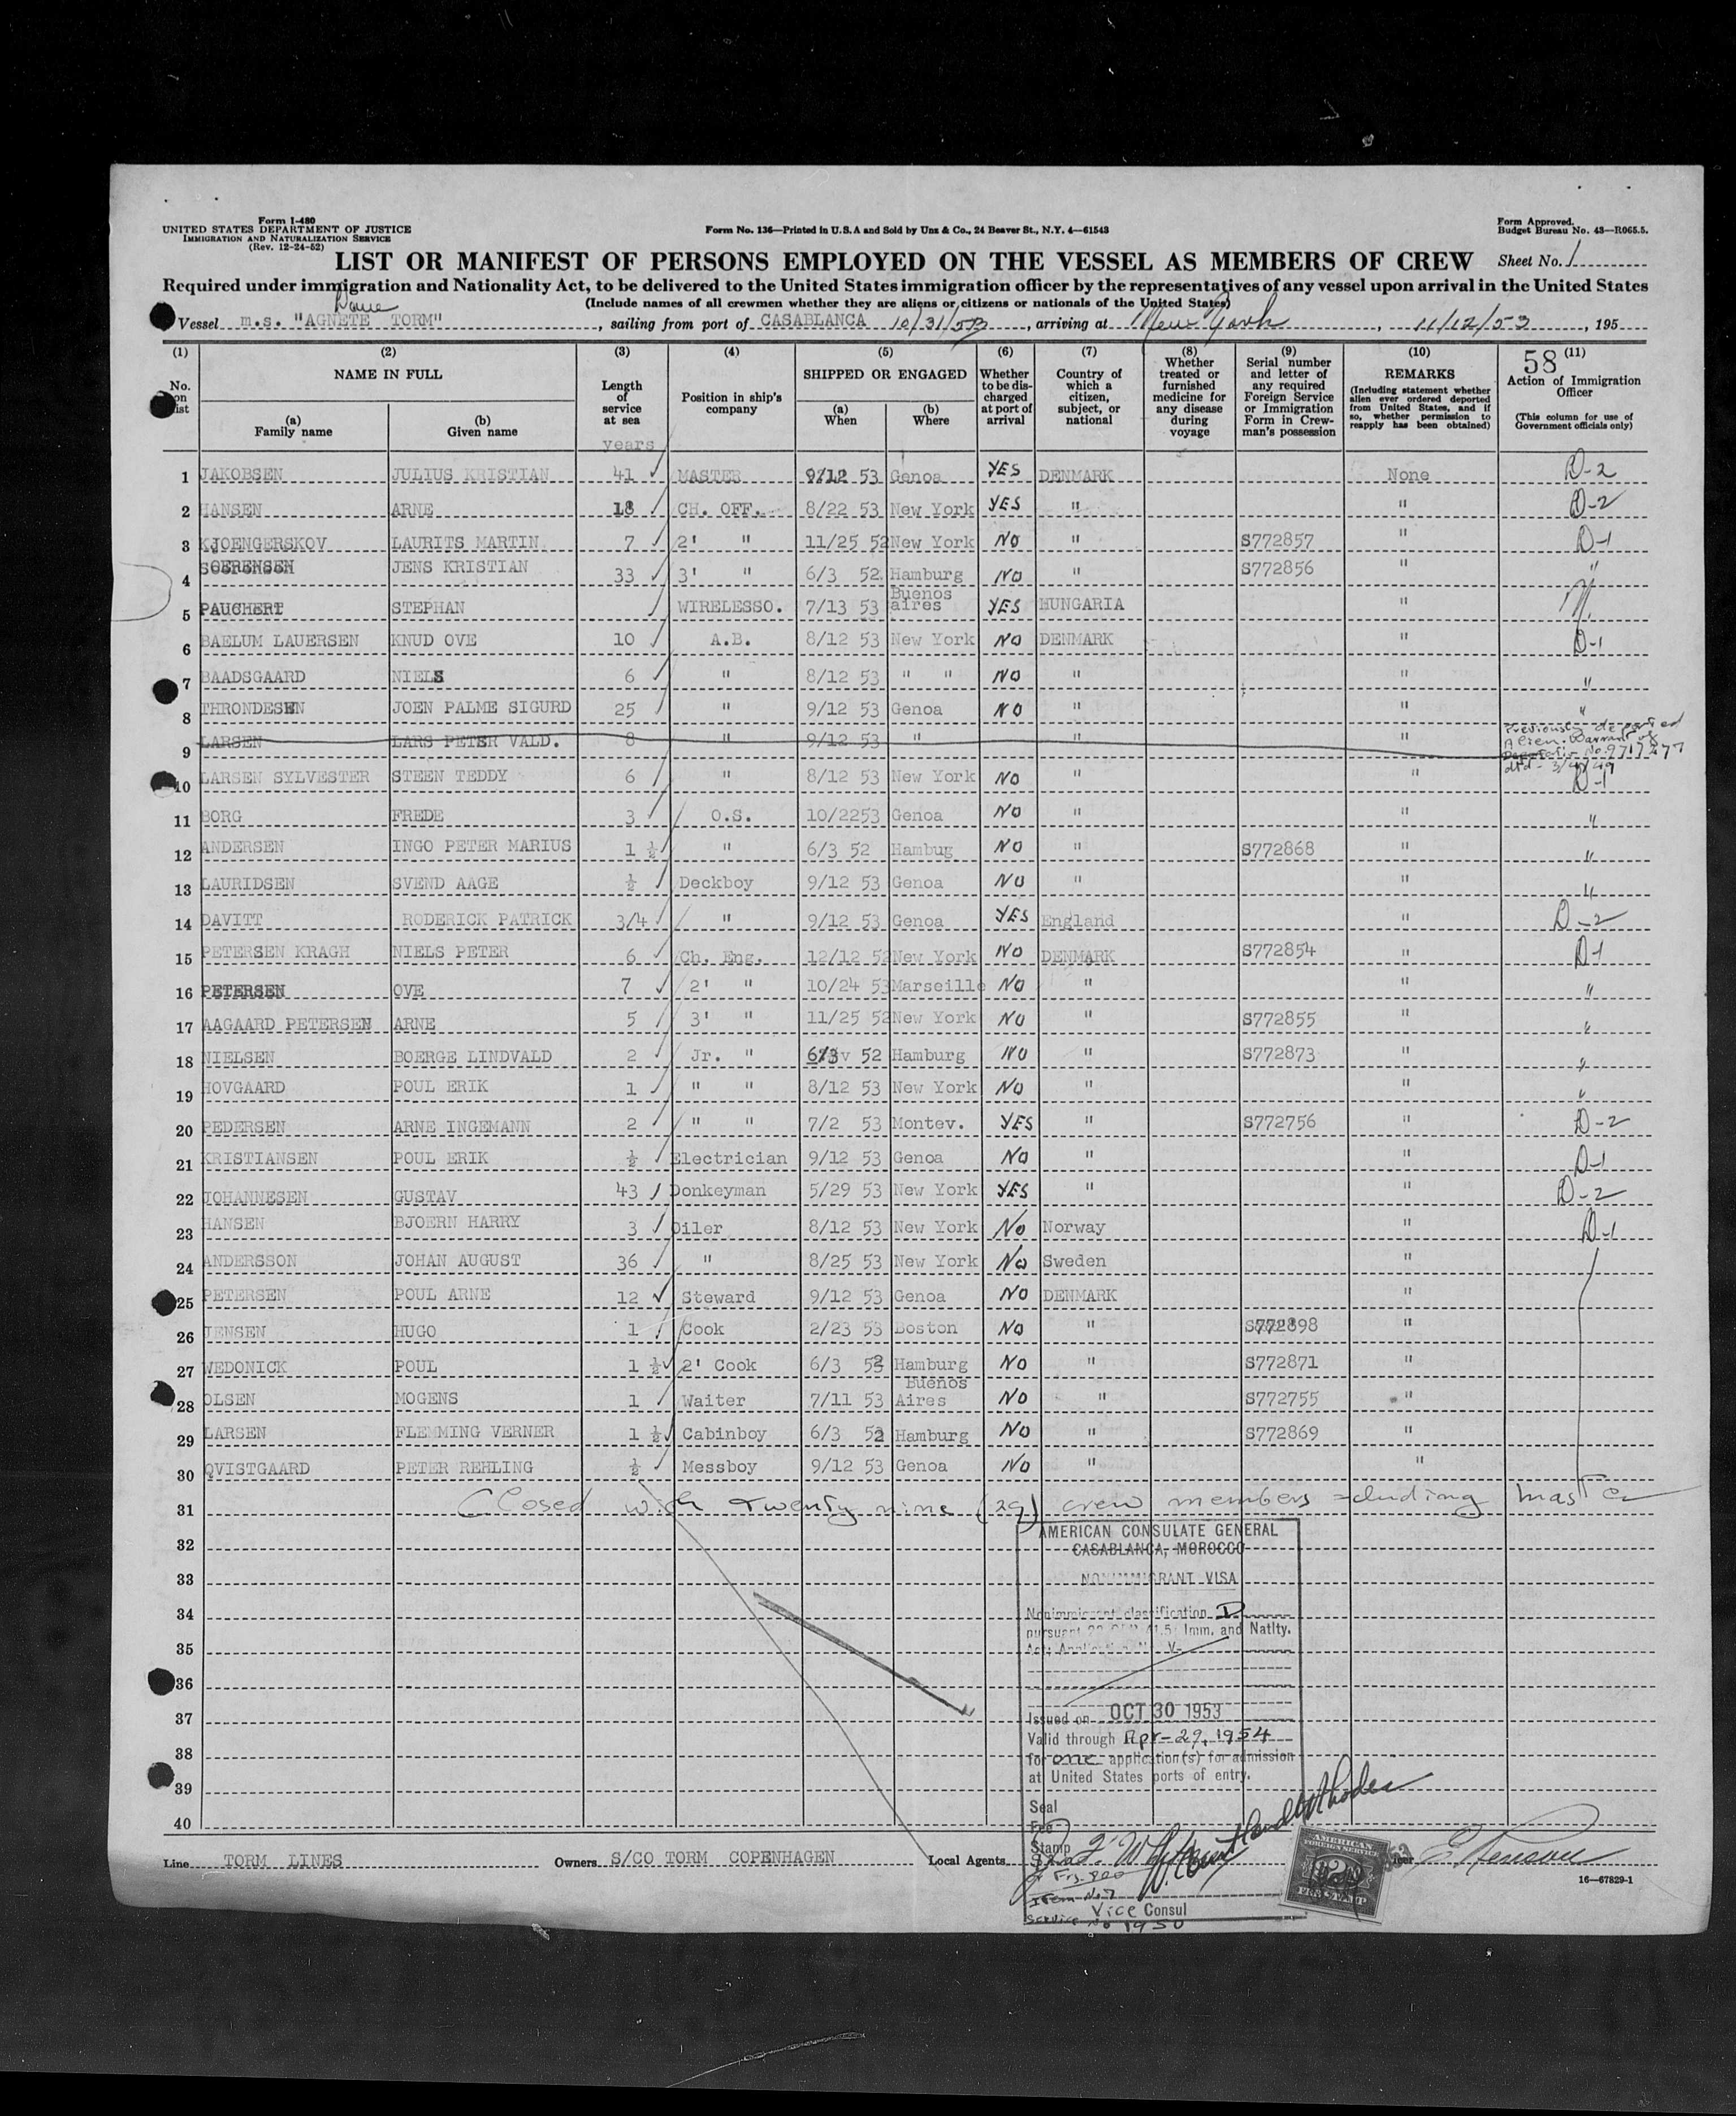 Form I-480
UNITED STATES DEPARTMENT OF JUSTICE
IMMIGRATION AND NATURALIZATION SERVICE
(Rev. 12-24-52)
Form No. 136—Printed in U.S.A and Sold by Unz & Co., 24 Beaver St., N.Y. 4—61543
Form Approved.
Budget Bureau No. 43—R065.5.
LIST OR MANIFEST OF PERSONS EMPLOYED ON THE VESSEL AS MEMBERS OF CREW Sheet No. 1
Required under immigration and Nationality Act, to be delivered to the United States immigration officer by the representatives of any vessel upon arrival in the United States
(Include names of all crewmen whether they are aliens or citizens or nationals of the United States)
Vessel m.s. "AGNETE TORM", sailing from port of CASABLANCA 10/31/53, arriving at New York, 11/12/53, 195
(1) (2) (3) (4) (5) (6) (7) (8) (9) (10) 58 (11)
No. on list
NAME IN FULL
(a) Family name
(b) Given name
Length of service at sea
years
Position in ship's company
SHIPPED OR ENGAGED
(a) When
(b) Where
Whether to be discharged at port of arrival
Country of which a citizen, subject, or national
Whether treated or furnished medicine for any disease during voyage
Serial number and letter of any required Foreign Service or Immigration Form in Crewman's possession
REMARKS
(Including statement whether alien ever ordered deported from United States, and if so, whether permission to reapply has been obtained)
Action of Immigration Officer
(This column for use of Government officials only)
1 JAKOBSEN JULIUS KRISTIAN 41 MASTER 9/12 53 Genoa YES DENMARK None D-2
2 HANSEN ARNE 18 CH. OFF. 8/22 53 New York YES " " D-2
3 KJOENGERSKOV LAURITS MARTIN 7 2' " 11/25 52 New York NO " S772857 " D-1
4 SOERENSEN JENS KRISTIAN 33 3' " 6/3 52 Hamburg NO " S772856 " "
5 PAUCHERT STEPHAN WIRELESSO. 7/13 53 Buenos aires YES HUNGARIA "
6 BAELUM LAUERSEN KNUD OVE 10 A.B. 8/12 53 New York NO DENMARK " D-1
7 BAADSGAARD NIELS 6 " 8/12 53 " " NO " " "
8 THRONDESEN JOEN PALME SIGURD 25 " 9/12 53 Genoa NO " " "
9 LARSEN LARS PETER VALD. 8 " 9/12 53 " " " Previously deported Alien. Warrant of
10 LARSEN SYLVESTER STEEN TEDDY 6 " 8/12 53 New York NO " " D-1
11 BORG FREDE 3 O.S. 10/2253 Genoa NO " " "
12 ANDERSEN INGO PETER MARIUS 1 ½ " 6/3 52 Hambug NO " S772868 " "
13 LAURIDSEN SVEND AAGE ½ Deckboy 9/12 53 Genoa NO " " "
14 DAVITT RODERICK PATRICK 3/4 " 9/12 53 Genoa YES England " D-2
15 PETERSEN KRAGH NIELS PETER 6 Ch. Eng. 12/12 52 New York NO DENMARK S772854 " D-1
16 PETERSEN OVE 7 2' " 10/24 53 Marseille NO " " "
17 AAGAARD PETERSEN ARNE 5 3' " 11/25 52 New York NO " S772855 " "
18 NIELSEN BOERGE LINDVALD 2 Jr. " 6/3 52 Hamburg NO " S772873 " "
19 HOVGAARD POUL ERIK 1 " " 8/12 53 New York NO " " "
20 PEDERSEN ARNE INGEMANN 2 " " 7/2 53 Montev. YES " S772756 " D-2
21 KRISTIANSEN POUL ERIK ½ Electrician 9/12 53 Genoa NO " " D-1
22 JOHANNESEN GUSTAV 43 Donkeyman 5/29 53 New York YES " " D-2
23 HANSEN BJOERN HARRY 3 Oiler 8/12 53 New York NO Norway " D-1
24 ANDERSSON JOHAN AUGUST 36 " 8/25 53 New York NO Sweden "
25 PETERSEN POUL ARNE 12 Steward 9/12 53 Genoa NO DENMARK "
26 JENSEN HUGO 1 Cook 2/23 53 Boston NO " S772898 "
27 WEDONICK POUL 1 ½ 2' Cook 6/3 52 Hamburg NO " S772871 "
28 OLSEN MOGENS 1 Waiter 7/11 53 Buenos Aires NO " S772755 "
29 LARSEN FLEMMING VERNER 1 ½ Cabinboy 6/3 52 Hamburg NO " S772869 "
30 QVISTGAARD PETER REHLING ½ Messboy 9/12 53 Genoa NO " "
31 Closed with twenty nine (29) crew members including master
32
33
34
35
36
37
38
39
40
AMERICAN CONSULATE GENERAL
CASABLANCA, MOROCCO
NONIMMIGRANT VISA
Nonimmigrant classification D
pursuant Imm. and Natlty.
Issued on OCT 30 1953
Valid through Apr-29, 1954
for one application(s) for admission
at United States ports of entry.
Seal
Fee
Stamp
Vice Consul
Service No 1950
Line TORM LINES Owners S/CO TORM COPENHAGEN Local Agents
AMERICAN
FOREIGN SERVICE
FEE STAMP
16—67829-1